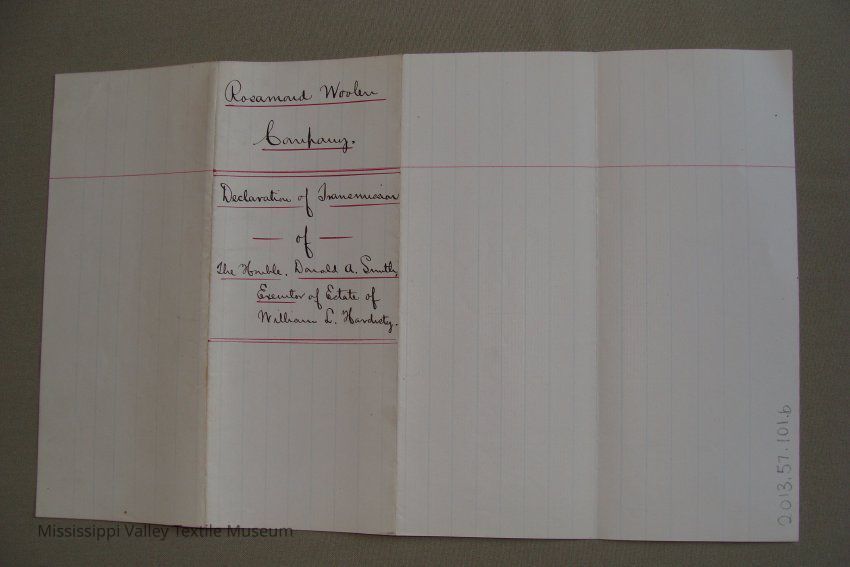 Rosamond Woolen
Company.
Declaration of Transmission
of
The Honble. Donald A. Smith,
Executor of Estate of
William L. Hardisty.
2013.57.101.b
Mississippi Valley Textile Museum